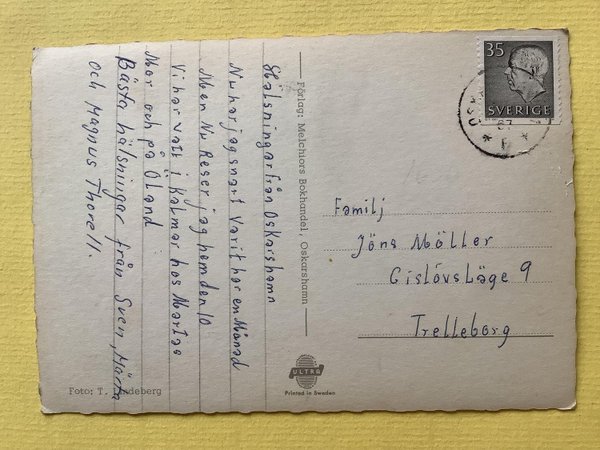 Hälsningar från Oskarshamn
Nu har jag snart varit har en Månad
Men Nu Reser jag hem den 10
Vi har vatt i Kalmar hos Martas
Mor och på Öland
Bästa hälsningar från Sven, Märta
och Magnus Thorell.
Förlag: Melchiors Bokhandel, Oskarshamn
35
SVERIGE
67
Familj
Jöns Möller
Gislövsläge 9
Trelleborg
ULTRA
Printed in Sweden
Foto: T.